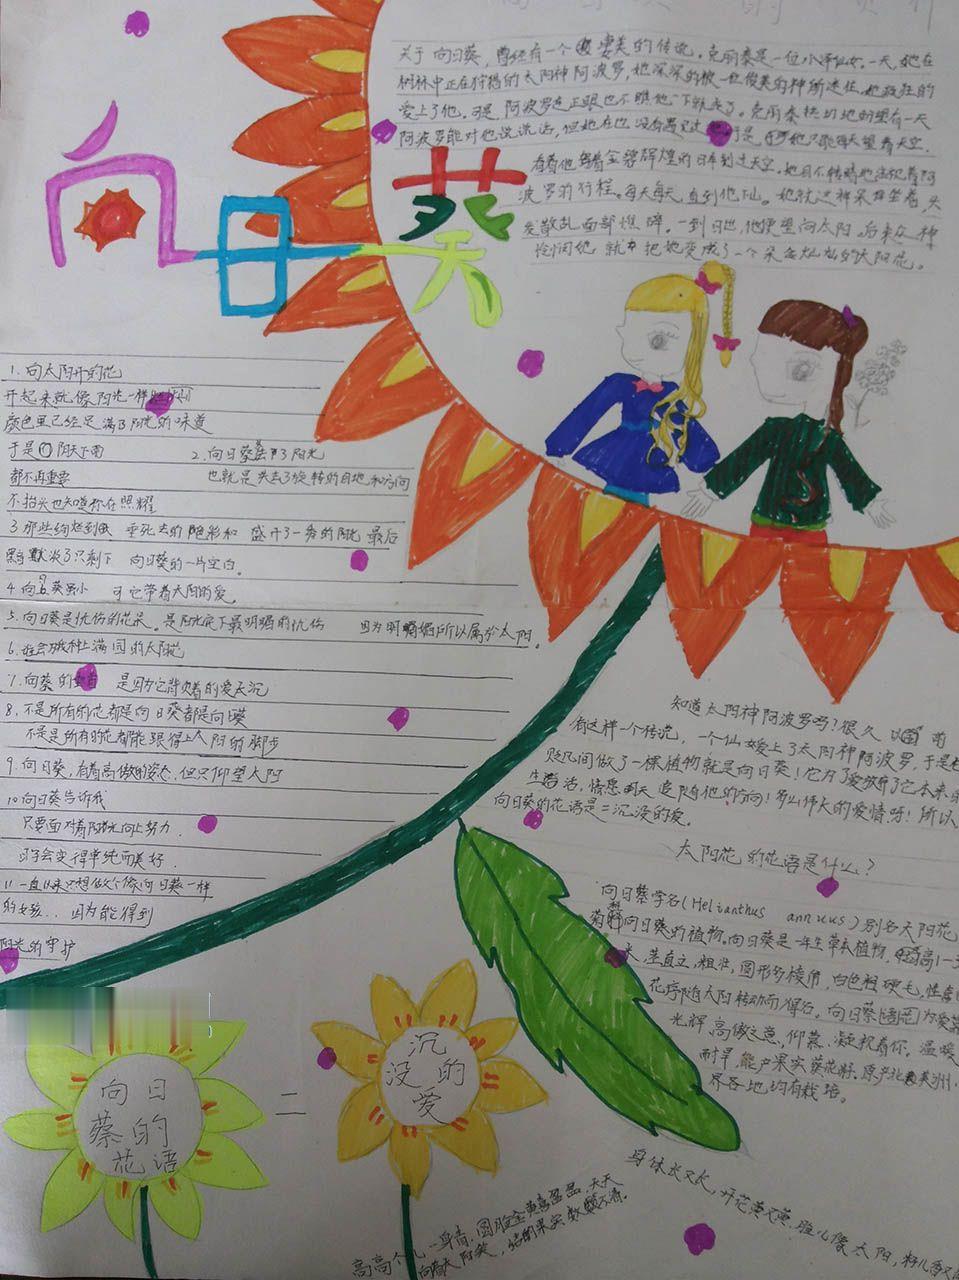 向日葵
关于向日葵，曾经有一个凄美的传说。克丽泰是一位小泽仙女。一天，她在
树林中正在狩猎的太阳神阿波罗，她深深的被一位俊美的神所迷住，她疯狂的
爱上了他。可是，阿波罗连正眼也不瞧他一下就走了。克丽泰热切地盼望有一天
阿波罗能对他说说话，但她在也没有遇见过 于是 她只能每天望着天空，
看着他 着金碧辉煌的日车划过天空。她目不转睛地注视着阿
波罗的行程。每天每天，直到他下山。她就这样呆坐着，头
发散乱面部憔悴。一到日出，他便望向太阳。后来众神
怜悯她 就 把她变成了一个朵金灿灿的太阳花。
1. 向太阳开的花
开起来就像阳光一样
颜色里已经足满了阳光的味道
于是 阴天下雨
都不再重要
不抬头也知道你在照耀
2. 向日葵 了阳光
也就是失去了旋转的目地和方向
3. 那些绚烂到 垂死去的艳彩和 盛开了一季的阳光 最后
默次了只剩下 向日葵的一片空白。
4. 向日葵虽小 可它带着太阳的爱
5. 向日葵是忧伤的花朵。是阳光底下最明媚的忧伤 因为明媚所以属于太阳。
6. 种上满园的太阳花
7. 向葵的 是因为它背负着的爱太沉
8. 不是所有的花都是向日葵都是向日葵
不是是所有的花都能跟得上太阳的脚步
9. 向日葵，有着高傲的姿态，但只仰望太阳
10 向日葵告诉我
只要面对着阳光向上努力
日子会变得单纯而美好．
11. 一直以来只想做个像向日葵一样
的女孩．．因为能得到
阳光的守护
知道太阳神阿波罗吗？很久以前
有这样一个传说，一个仙女爱上了太阳神阿波罗，于是
贬凡间做了一棵植物就是向日葵！它为了爱放弃了它本来的
生活，情愿 天追随他的方向！多么伟大的爱情呀！所以
向日葵的花语是=沉没的爱。
太阳花的花语是什么？
向日葵学名(Helianthus annuus)别名太阳花
菊 向日葵的植物。向日葵是一年生草本植物，高1-3
米，茎直立，粗壮，圆形多棱角，白色粗硬毛，性
花序随太阳转动而得名。向日葵 为爱慕
光辉，高傲之意，仰慕，凝视着你。温暖
耐旱，能产果实葵花籽。原产北美洲，
界各地均有栽培。
向日
葵的
花语
=
沉
没的
爱
高高个儿一身青，圆脸金黄喜盈盈，天天
向着太阳笑，结的果实数数不清。
身体长又长，开花黄又黄，脸儿像太阳，籽儿香又